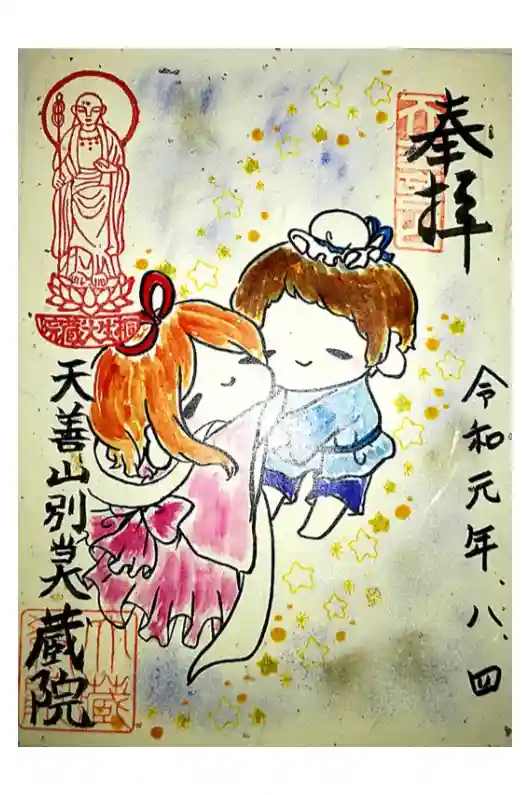 奉拝
令和元年、八、四
桐生大蔵院
天善山別当大蔵院